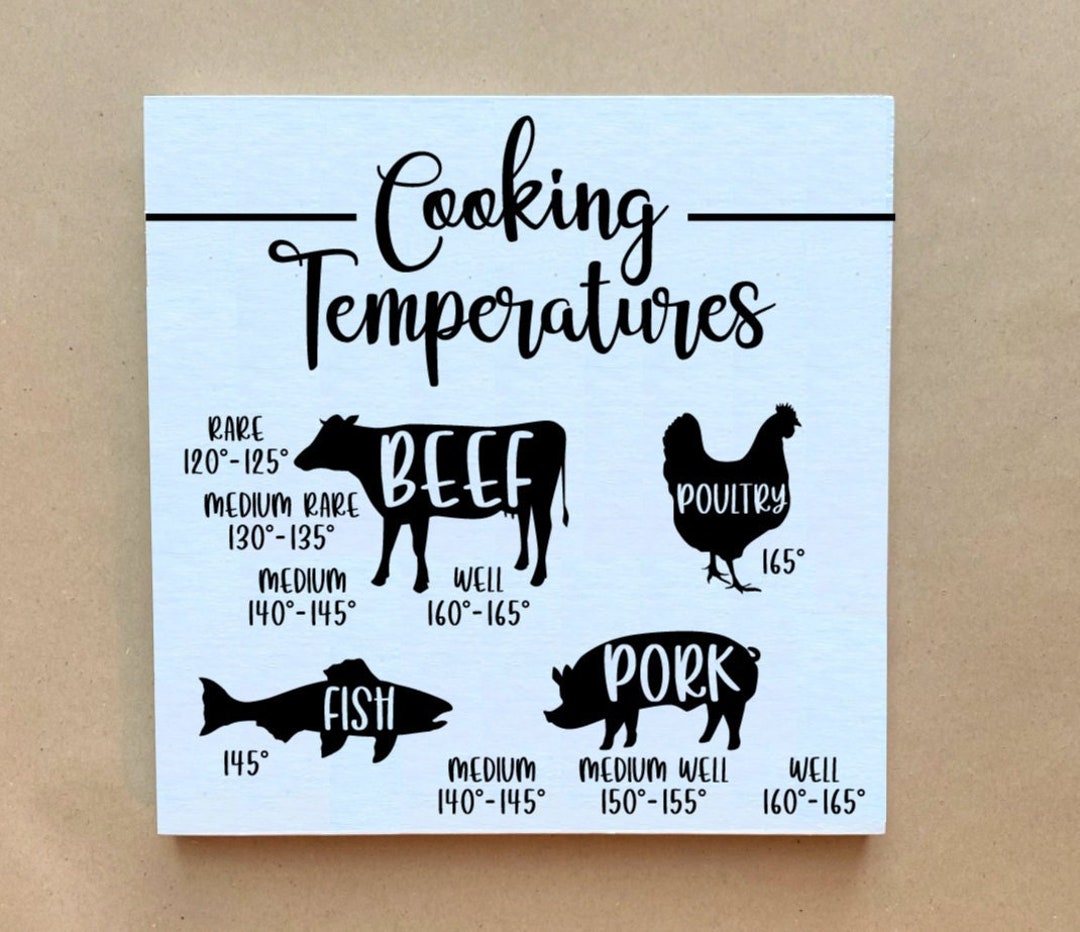 Cooking
Temperatures
RARE
120°-125°
BEEF
MEDIUM RARE
130°-135°
MEDIUM
140°-145°
WELL
160°-165°
POULTRY
165°
FISH
145°
PORK
MEDIUM
140°-145°
MEDIUM WELL
150°-155°
WELL
160°-165°